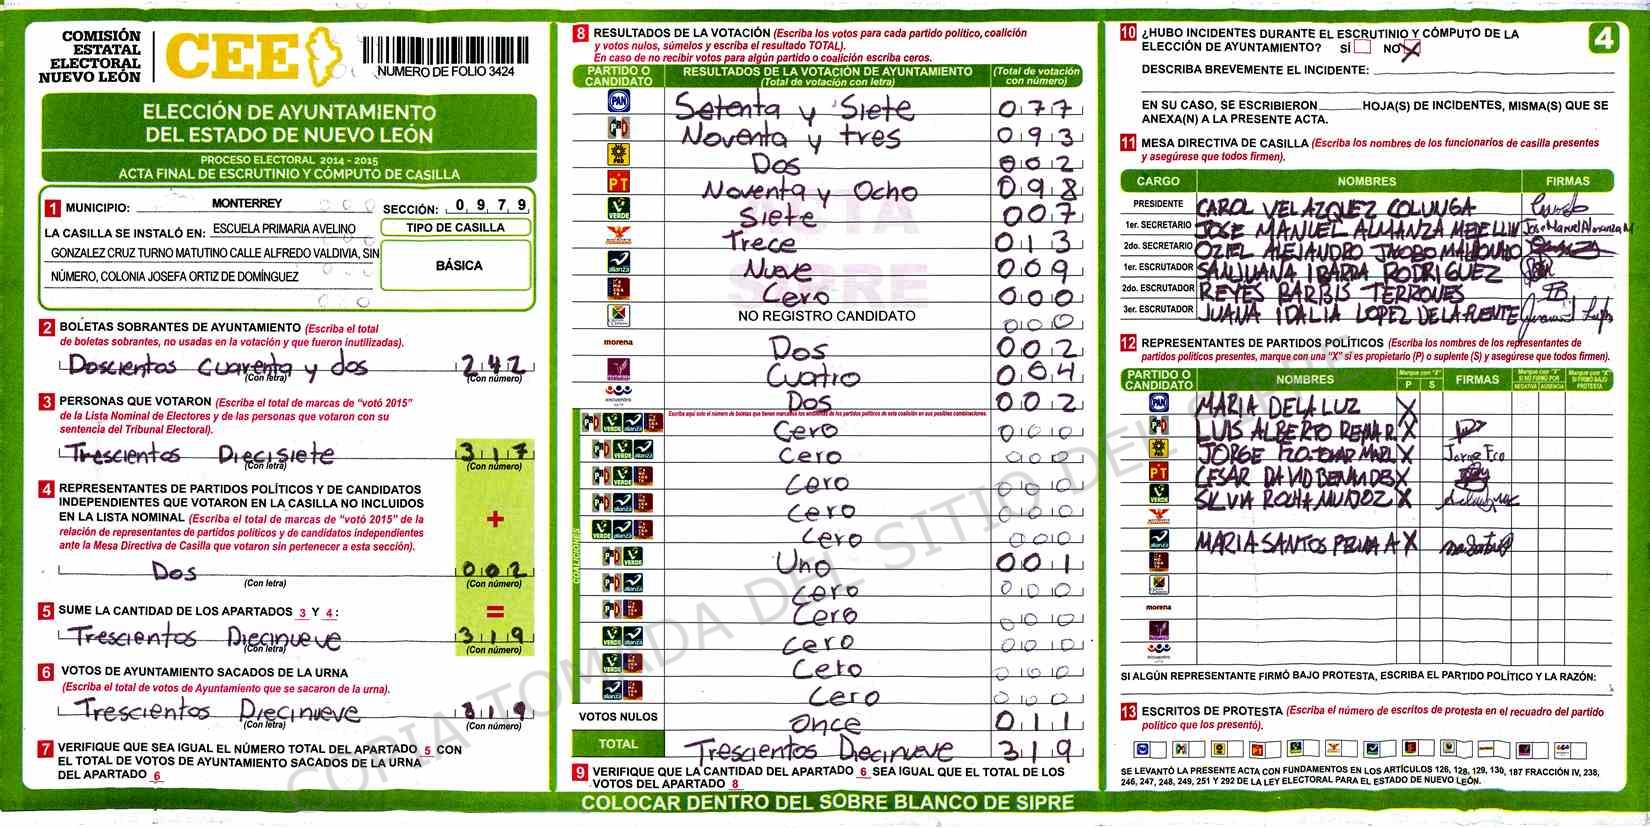 COMISIÓN
ESTATAL
ELECTORAL
NUEVO LEÓN
CEE
NUMERO DE FOLIO 3424
ELECCIÓN DE AYUNTAMIENTO
DEL ESTADO DE NUEVO LEÓN
PROCESO ELECTORAL 2014 - 2015
ACTA FINAL DE ESCRUTINIO Y CÓMPUTO DE CASILLA
1 MUNICIPIO: MONTERREY SECCIÓN: 0 9 7 9
LA CASILLA SE INSTALÓ EN: ESCUELA PRIMARIA AVELINO
GONZALEZ CRUZ TURNO MATUTINO CALLE ALFREDO VALDIVIA, SIN
NÚMERO, COLONIA JOSEFA ORTIZ DE DOMÍNGUEZ
TIPO DE CASILLA
BÁSICA
2 BOLETAS SOBRANTES DE AYUNTAMIENTO (Escriba el total
de boletas sobrantes, no usadas en la votación y que fueron inutilizadas).
Doscientos Cuarenta y dos 2 4 2
(Con letra) (Con número)
3 PERSONAS QUE VOTARON (Escriba el total de marcas de “votó 2015”
de la Lista Nominal de Electores y de las personas que votaron con su
sentencia del Tribunal Electoral).
Trescientos Diecisiete 3 1 7
(Con letra) (Con número)
4 REPRESENTANTES DE PARTIDOS POLÍTICOS Y DE CANDIDATOS
INDEPENDIENTES QUE VOTARON EN LA CASILLA NO INCLUIDOS
EN LA LISTA NOMINAL (Escriba el total de marcas de “votó 2015” de la
relación de representantes de partidos políticos y de candidatos independientes
ante la Mesa Directiva de Casilla que votaron sin pertenecer a esta sección).
+
Dos 0 0 2
(Con letra) (Con número)
5 SUME LA CANTIDAD DE LOS APARTADOS 3 Y 4: =
Trescientos Diecinueve 3 1 9
(Con letra) (Con número)
6 VOTOS DE AYUNTAMIENTO SACADOS DE LA URNA
(Escriba el total de votos de Ayuntamiento que se sacaron de la urna).
Trescientos Diecinueve 3 1 9
(Con letra) (Con número)
7 VERIFIQUE QUE SEA IGUAL EL NÚMERO TOTAL DEL APARTADO 5 CON
EL TOTAL DE VOTOS DE AYUNTAMIENTO SACADOS DE LA URNA
DEL APARTADO 6
8 RESULTADOS DE LA VOTACIÓN (Escriba los votos para cada partido político, coalición
y votos nulos, súmelos y escriba el resultado TOTAL).
En caso de no recibir votos para algún partido o coalición escriba ceros.
PARTIDO O CANDIDATO RESULTADOS DE LA VOTACIÓN DE AYUNTAMIENTO (Total de votación con letra) (Total de votación con número)
PAN Setenta y Siete 0 7 7
PRD Noventa y tres 0 9 3
PRD Dos 0 0 2
PT Noventa y Ocho 0 9 8
VERDE Siete 0 0 7
Trece 0 1 3
alianza Nueve 0 0 9
Cero 0 0 0
NO REGISTRO CANDIDATO 0 0 0
morena Dos 0 0 2
Cuatro 0 0 4
encuentro Dos 0 0 2
Escriba aquí solo el número de boletas que tienen marcados los emblemas de los partidos políticos de esta coalición en sus posibles combinaciones.
COALICIONES
Cero 0 0 0
Cero 0 0 0
Cero 0 0 0
Cero 0 0 0
Cero 0 0 0
Uno 0 0 1
Cero 0 0 0
Cero 0 0 0
Cero 0 0 0
Cero 0 0 0
Cero 0 0 0
VOTOS NULOS Once 0 1 1
TOTAL Trescientos Diecinueve 3 1 9
9 VERIFIQUE QUE LA CANTIDAD DEL APARTADO 6 SEA IGUAL QUE EL TOTAL DE LOS
VOTOS DEL APARTADO 8
COLOCAR DENTRO DEL SOBRE BLANCO DE SIPRE
10 ¿HUBO INCIDENTES DURANTE EL ESCRUTINIO Y CÓMPUTO DE LA
ELECCIÓN DE AYUNTAMIENTO? SÍ NO X
4
DESCRIBA BREVEMENTE EL INCIDENTE:
EN SU CASO, SE ESCRIBIERON HOJA(S) DE INCIDENTES, MISMA(S) QUE SE
ANEXA(N) A LA PRESENTE ACTA.
11 MESA DIRECTIVA DE CASILLA (Escriba los nombres de los funcionarios de casilla presentes
y asegúrese que todos firmen).
CARGO NOMBRES FIRMAS
PRESIDENTE CAROL VELAZQUEZ COLUNGA
1er. SECRETARIO JOSE MANUEL ALMANZA MEDELLIN Jose Manuel Almanza M
2do. SECRETARIO OZIEL ALEJANDRO JACOBO MALDONADO
1er. ESCRUTADOR SANJUANA IBARRA RODRIGUEZ
2do. ESCRUTADOR REYES BARBIS TERRONES
3er. ESCRUTADOR JUANA IDALIA LOPEZ DE LA FUENTE
12 REPRESENTANTES DE PARTIDOS POLÍTICOS (Escriba los nombres de los representantes de
partidos políticos presentes, marque con una “X” si es propietario (P) o suplente (S) y asegúrese que todos firmen).
PARTIDO O CANDIDATO NOMBRES Marque con “X” P S FIRMAS Marque con “X” SI NO FIRMÓ POR NEGATIVA AUSENCIA Marque con “X” SI FIRMÓ BAJO PROTESTA
PAN MARIA DE LA LUZ X
LUIS ALBERTO REYNA R. X
JORGE X
PT CESAR DAVID X
VERDE SILVIA ROCHA MUÑOZ X
alianza MARIA SANTOS X
morena
encuentro
SI ALGÚN REPRESENTANTE FIRMÓ BAJO PROTESTA, ESCRIBA EL PARTIDO POLÍTICO Y LA RAZÓN:
13 ESCRITOS DE PROTESTA (Escriba el número de escritos de protesta en el recuadro del partido
político que los presentó).
SE LEVANTÓ LA PRESENTE ACTA CON FUNDAMENTOS EN LOS ARTÍCULOS 126, 128, 129, 130, 187 FRACCIÓN IV, 238,
246, 247, 248, 249, 251 Y 292 DE LA LEY ELECTORAL PARA EL ESTADO DE NUEVO LEÓN.
COPIA TOMADA DEL SITIO DEL
SIPRE